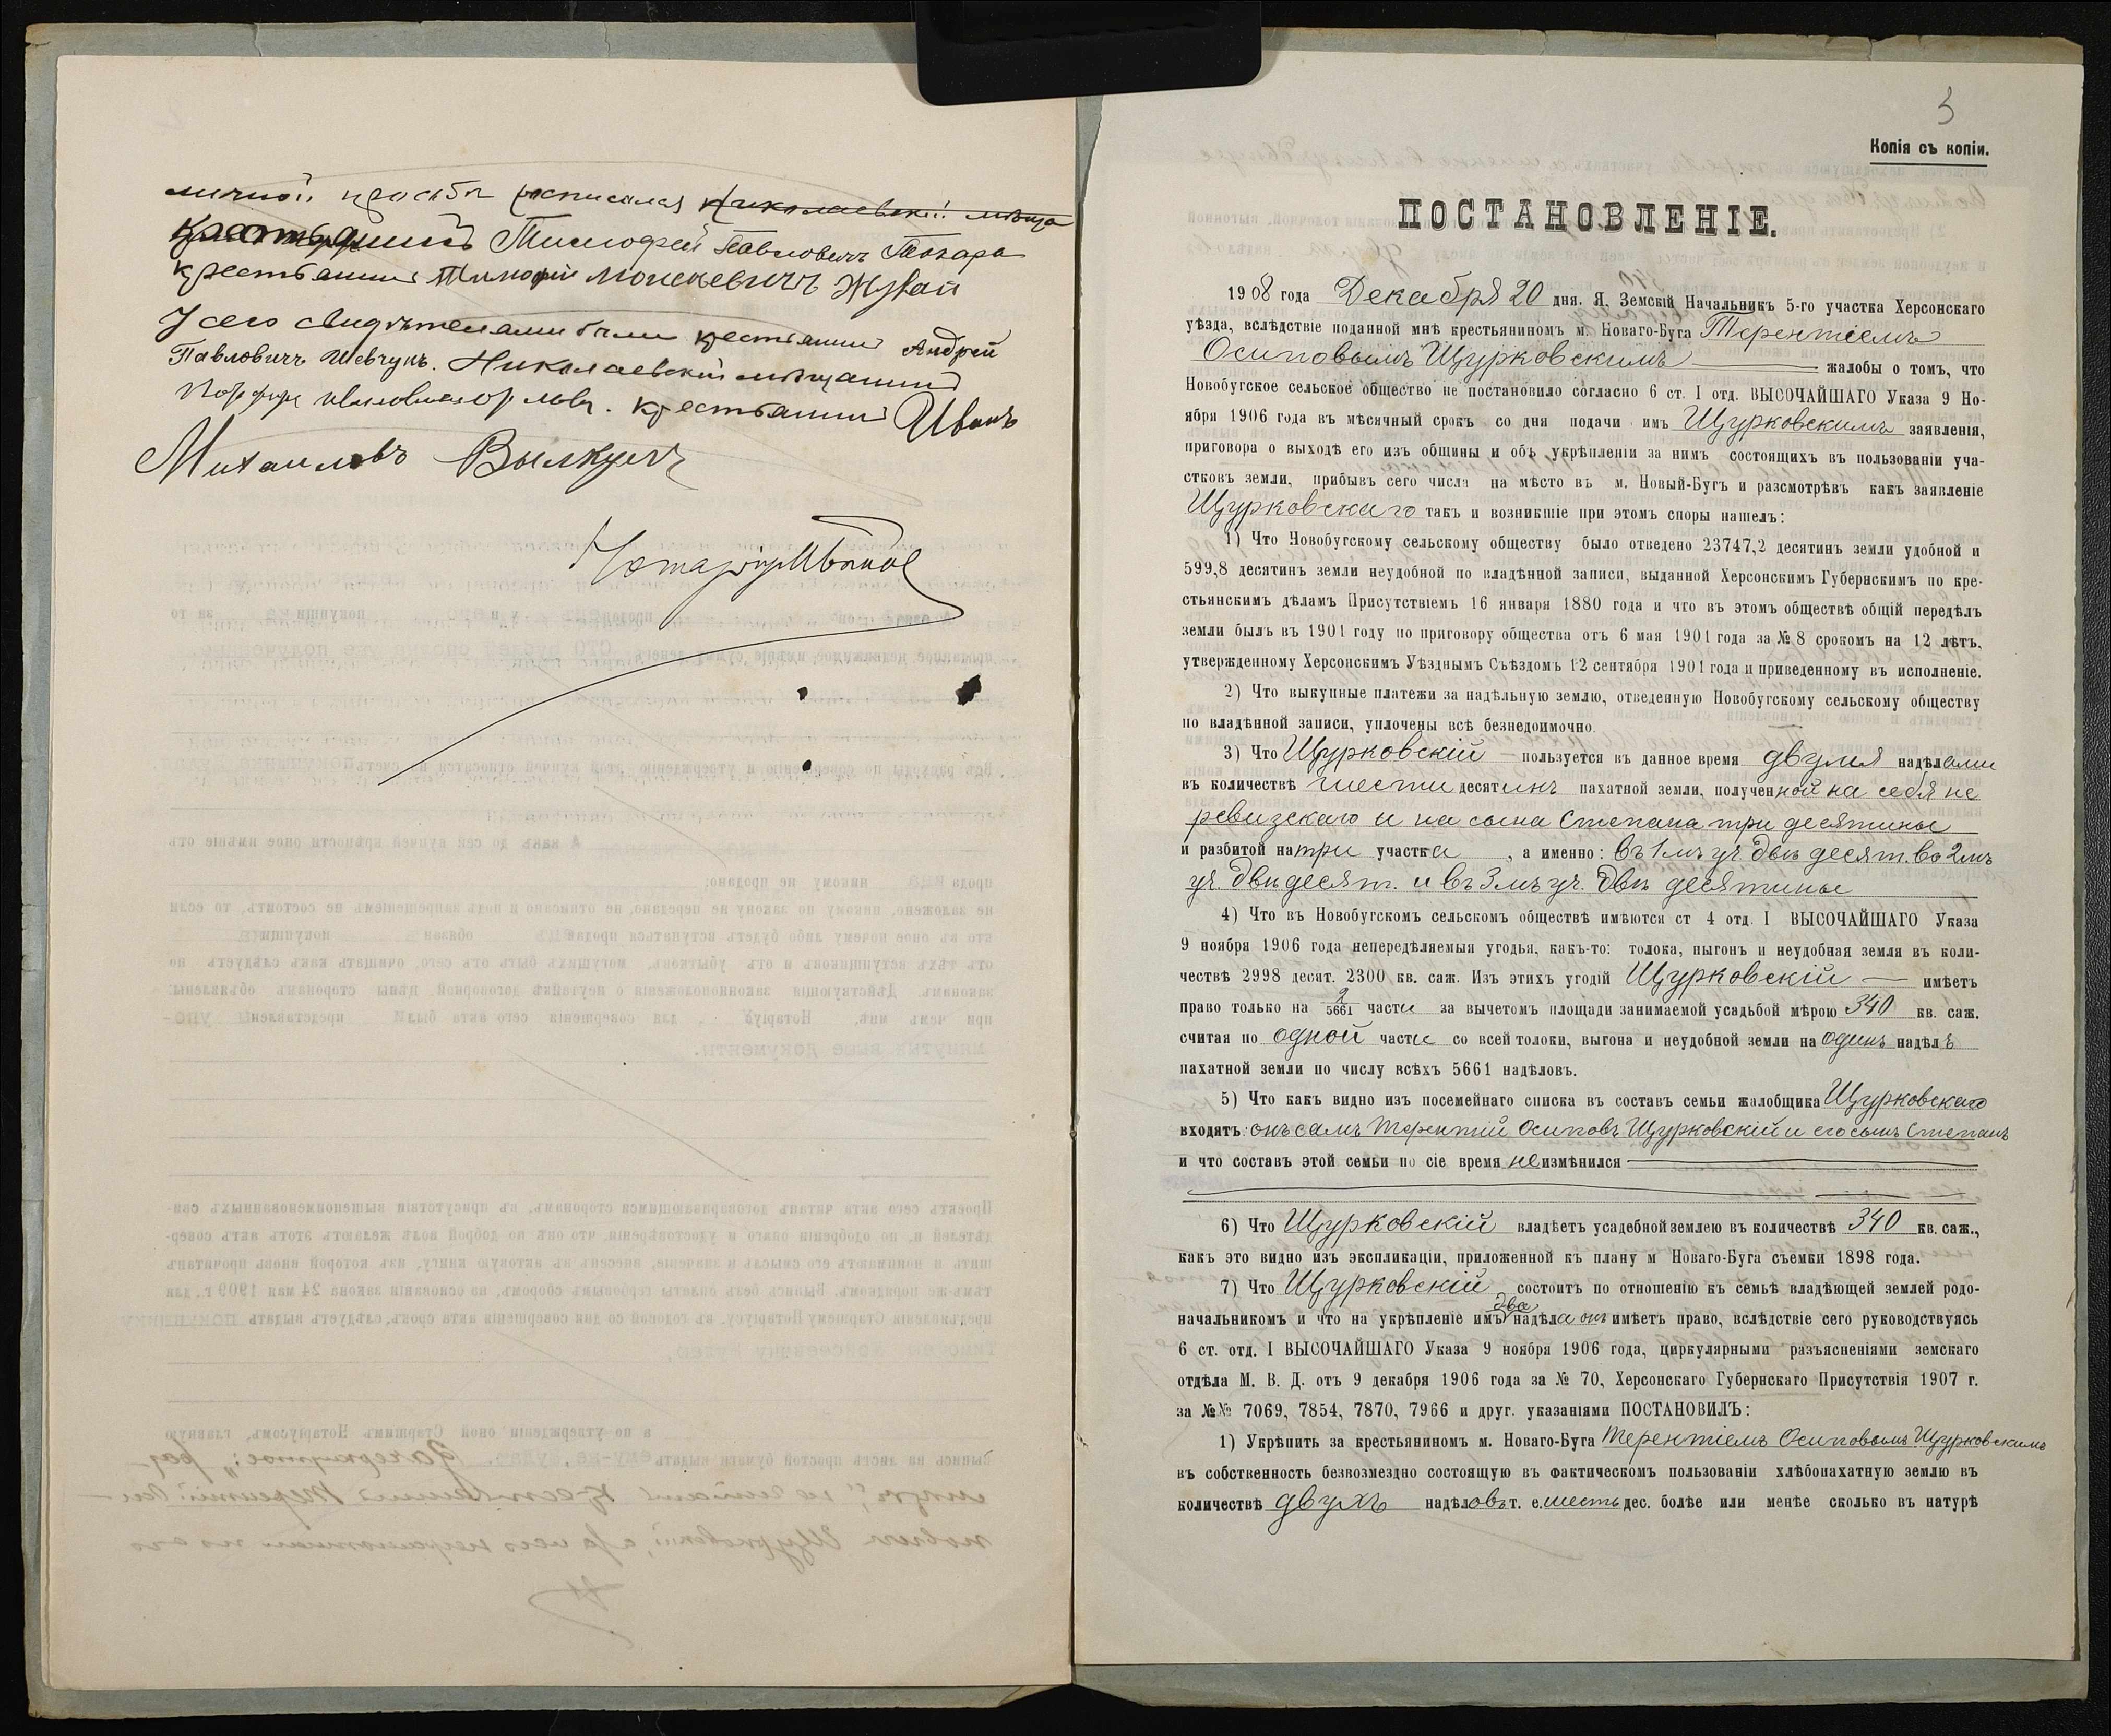 личной просьбѣ росписался Николаевскій мѣща
Крестьянинъ Тимофей Павловичъ Токарь
крестьянинъ Тимофей Моисеевичъ
У сего свидѣтелями были крестьянинъ Андрей
Павловичъ Шевчукъ. Николаевскій мѣщанинъ
крестьянинъ Иванъ
Михаиловъ
Нотаріусъ
3
Копія съ копіи.
ПОСТАНОВЛЕНІЕ.
1908 года Декабря 20 дня. Я, Земскій Начальникъ 5-го участка Херсонскаго
уѣзда, вслѣдствіе поданной мнѣ крестьяниномъ м. Новаго-Буга Терентіемъ
Осиповымъ Щурковскимъ жалобы о томъ, что
Новобугское сельское общество не постановило согласно 6 ст. I отд. ВЫСОЧАЙШАГО Указа 9 Но-
ября 1906 года въ мѣсячный срокъ со дня подачи имъ Щурковскимъ заявленія,
приговора о выходѣ его изъ общины и объ укрѣпленіи за нимъ состоящихъ въ пользованіи уча-
стковъ земли, прибывъ сего числа на мѣсто въ м. Новый-Бугъ и разсмотрѣвъ какъ заявленіе
Щурковскаго такъ и возникшіе при этомъ споры нашелъ:
1) Что Новобугскому сельскому обществу было отведено 23747,2 десятинъ земли удобной и
599,8 десятинъ земли неудобной по владѣнной записи, выданной Херсонскимъ Губернскимъ по кре-
стьянскимъ дѣламъ Присутствіемъ 16 января 1880 года и что въ этомъ обществѣ общій передѣлъ
земли былъ въ 1901 году по приговору общества отъ 6 мая 1901 года за № 8 срокомъ на 12 лѣтъ,
утвержденному Херсонскимъ Уѣзднымъ Съѣздомъ 12 сентября 1901 года и приведенному въ исполненіе.
2) Что выкупные платежи за надѣльную землю, отведенную Новобугскому сельскому обществу
по владѣнной записи, уплочены всѣ безнедоимочно.
3) Что Щурковскій пользуется въ данное время двумя надѣлами
въ количествѣ шести десятинъ пахатной земли, полученной на себя не
ревизскаго и на сына Степана три десятины
и разбитой на три участка, а именно: въ 1мъ уч. двѣ десят. во 2мъ
уч. двѣ десят. и въ 3мъ уч. двѣ десятины
4) Что въ Новобугскомъ сельскомъ обществѣ имѣются ст 4 отд. I ВЫСОЧАЙШАГО Указа
9 ноября 1906 года непередѣляемыя угодья, какъ-то: толока, выгонъ и неудобная земля въ коли-
чествѣ 2998 десят. 2300 кв. саж. Изъ этихъ угодій Щурковскій имѣетъ
право только на 2/5661 части за вычетомъ площади занимаемой усадьбой мѣрою 340 кв. саж.
считая по одной части со всей толоки, выгона и неудобной земли на одинъ надѣлъ
пахатной земли по числу всѣхъ 5661 надѣловъ.
5) Что какъ видно изъ посемейнаго списка въ составъ семьи жалобщика Щурковскаго
входятъ: онъ самъ Терентій Осиповъ Щурковскій и его сынъ Степанъ
и что составъ этой семьи по сіе время не измѣнился
6) Что Щурковскій владѣетъ усадебной землею въ количествѣ 340 кв. саж.,
какъ это видно изъ экспликаціи, приложенной къ плану м Новаго-Буга съемки 1898 года.
7) Что Щурковскій состоитъ по отношенію къ семьѣ владѣющей землей родо-
начальникомъ и что на укрѣпленіе имъ два надѣла онъ имѣетъ право, вслѣдствіе сего руководствуясь
6 ст. отд. I ВЫСОЧАЙШАГО Указа 9 ноября 1906 года, циркулярными разъясненіями земскаго
отдѣла М. В. Д. отъ 9 декабря 1906 года за № 70, Херсонскаго Губернскаго Присутствія 1907 г.
за №№ 7069, 7854, 7870, 7966 и друг. указаніями ПОСТАНОВИЛЪ:
1) Укрѣпить за крестьяниномъ м. Новаго-Буга Терентіемъ Осиповымъ Щурковскимъ
въ собственность безвозмездно состоящую въ фактическомъ пользованіи хлѣбопахатную землю въ
количествѣ двухъ надѣловъ т. е. шесть дес. болѣе или менѣе сколько въ натурѣ